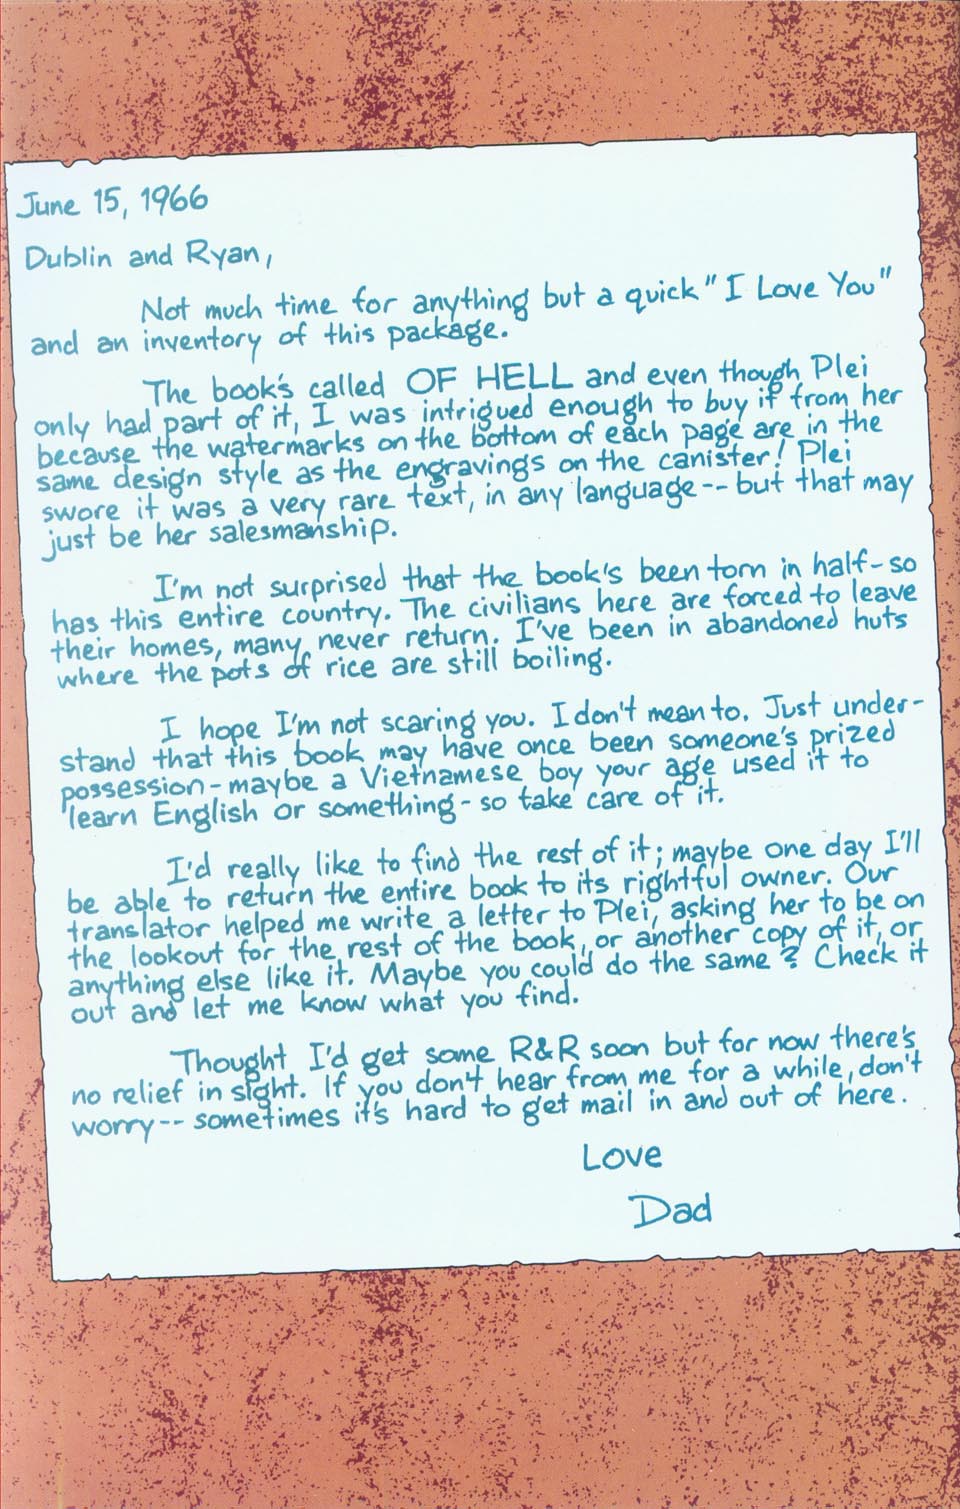 June 15, 1966
Dublin and Ryan,
Not much time for anything but a quick "I Love You"
and an inventory of this package.
The book's called OF HELL and even though Plei
only had part of it, I was intrigued enough to buy it from her
because the watermarks on the bottom of each page are in the
same design style as the engravings on the canister! Plei
swore it was a very rare text, in any language -- but that may
just be her salesmanship.
I'm not surprised that the book's been torn in half - so
has this entire country. The civilians here are forced to leave
their homes, many never return. I've been in abandoned huts
where the pots of rice are still boiling.
I hope I'm not scaring you. I don't mean to. Just under-
stand that this book may have once been someone's prized
possession - maybe a Vietnamese boy your age used it to
learn English or something - so take care of it.
I'd really like to find the rest of it; maybe one day I'll
be able to return the entire book to its rightful owner. Our
translator helped me write a letter to Plei, asking her to be on
the lookout for the rest of the book, or another copy of it, or
anything else like it. Maybe you could do the same? Check it
out and let me know what you find.
Thought I'd get some R&R soon but for now there's
no relief in sight. If you don't hear from me for a while, don't
worry -- sometimes it's hard to get mail in and out of here.
Love
Dad